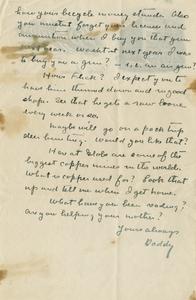 how your bicycle money stands. Also
you mustn't forget your license and
ammunition when I buy you that gun
next year. Wasn't it next year I was
to buy you a gun? -
How's Fluck? I expect you to
have him thinned down and in good
shape. See that he gets a raw bone
every week or so.
Maybe will go on a pack trip
deer hunting. Would you like that?
Here at Globe are some of the
biggest copper mines in the world.
What is copper used for? Look that
up and tell me when I get home.
What have you been reading?
Are you helping your mother?
Yours always
Daddy